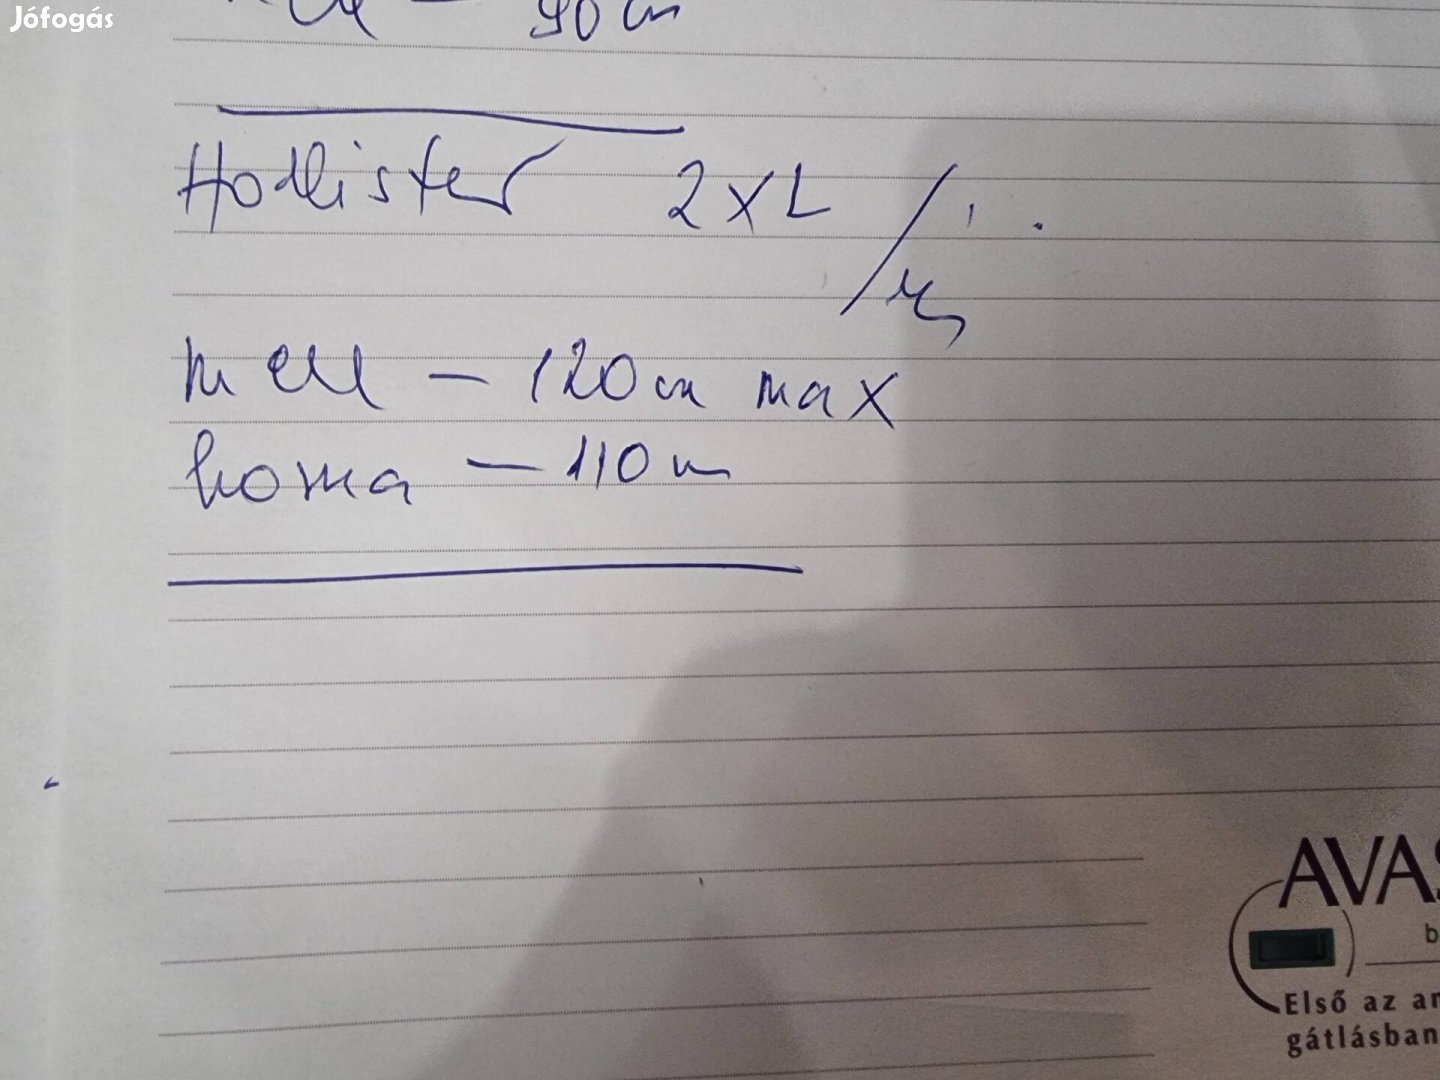 Jófogás
90 cm
Hollister 2XL /
mell - 120 cm max
hossza - 110 cm
AVAS
Első az an
gátlásban